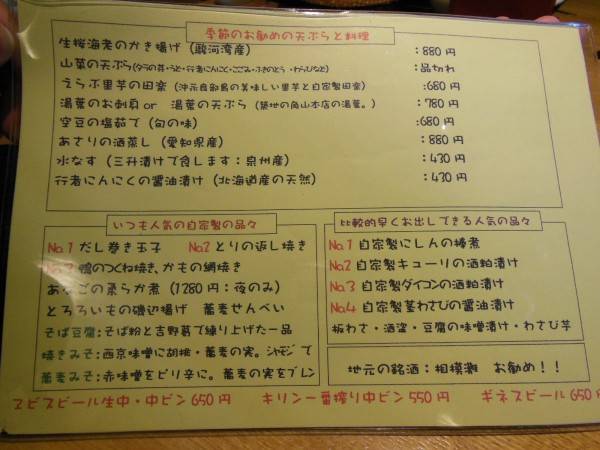 季節のお勧めの天ぷらと料理
生桜海老のかき揚げ(駿河湾産) :880円
山菜の天ぷら(タラの芽・うど・行者にんにく・こごみ・ふきのとう・わらびなど) :品切れ
えらぶ里芋の田楽(沖永良部島の美味しい里芋と自家製田楽) :680円
湯葉のお刺身or 湯葉の天ぷら(築地の角山本店の湯葉。) :780円
空豆の塩茹で(旬の味) :680円
あさりの酒蒸し(愛知県産) :880円
水なす(三升漬けで食します:泉州産) :430円
行者にんにくの醤油漬け(北海道産の天然) :430円
いつも人気の自家製の品々
No.1 だし巻き玉子 No2 とりの返し焼き
鴨のつくね焼き、かもの網焼き
あなごの柔らか煮(1280円:夜のみ)
とろろいもの磯辺揚げ 蕎麦せんべい
そば豆腐:そば粉と吉野葛で練り上げた一品
焼きみそ:西京味噌に胡桃・蕎麦の実。シャモジで
蕎麦みそ:赤味噌をピリ辛に。蕎麦の実をブレン
比較的早くお出しできる人気の品々
No.1 自家製にしんの棒煮
No.2 自家製キューリの酒粕漬け
No.3 自家製ダイコンの酒粕漬け
No.4 自家製茎わさびの醤油漬け
板わさ・酒盗・豆腐の味噌漬け・わさび芋
地元の銘酒:相模灘 お勧め!!
ヱビスビール生中・中ビン650円 キリン一番搾り中ビン550円 ギネスビール650円